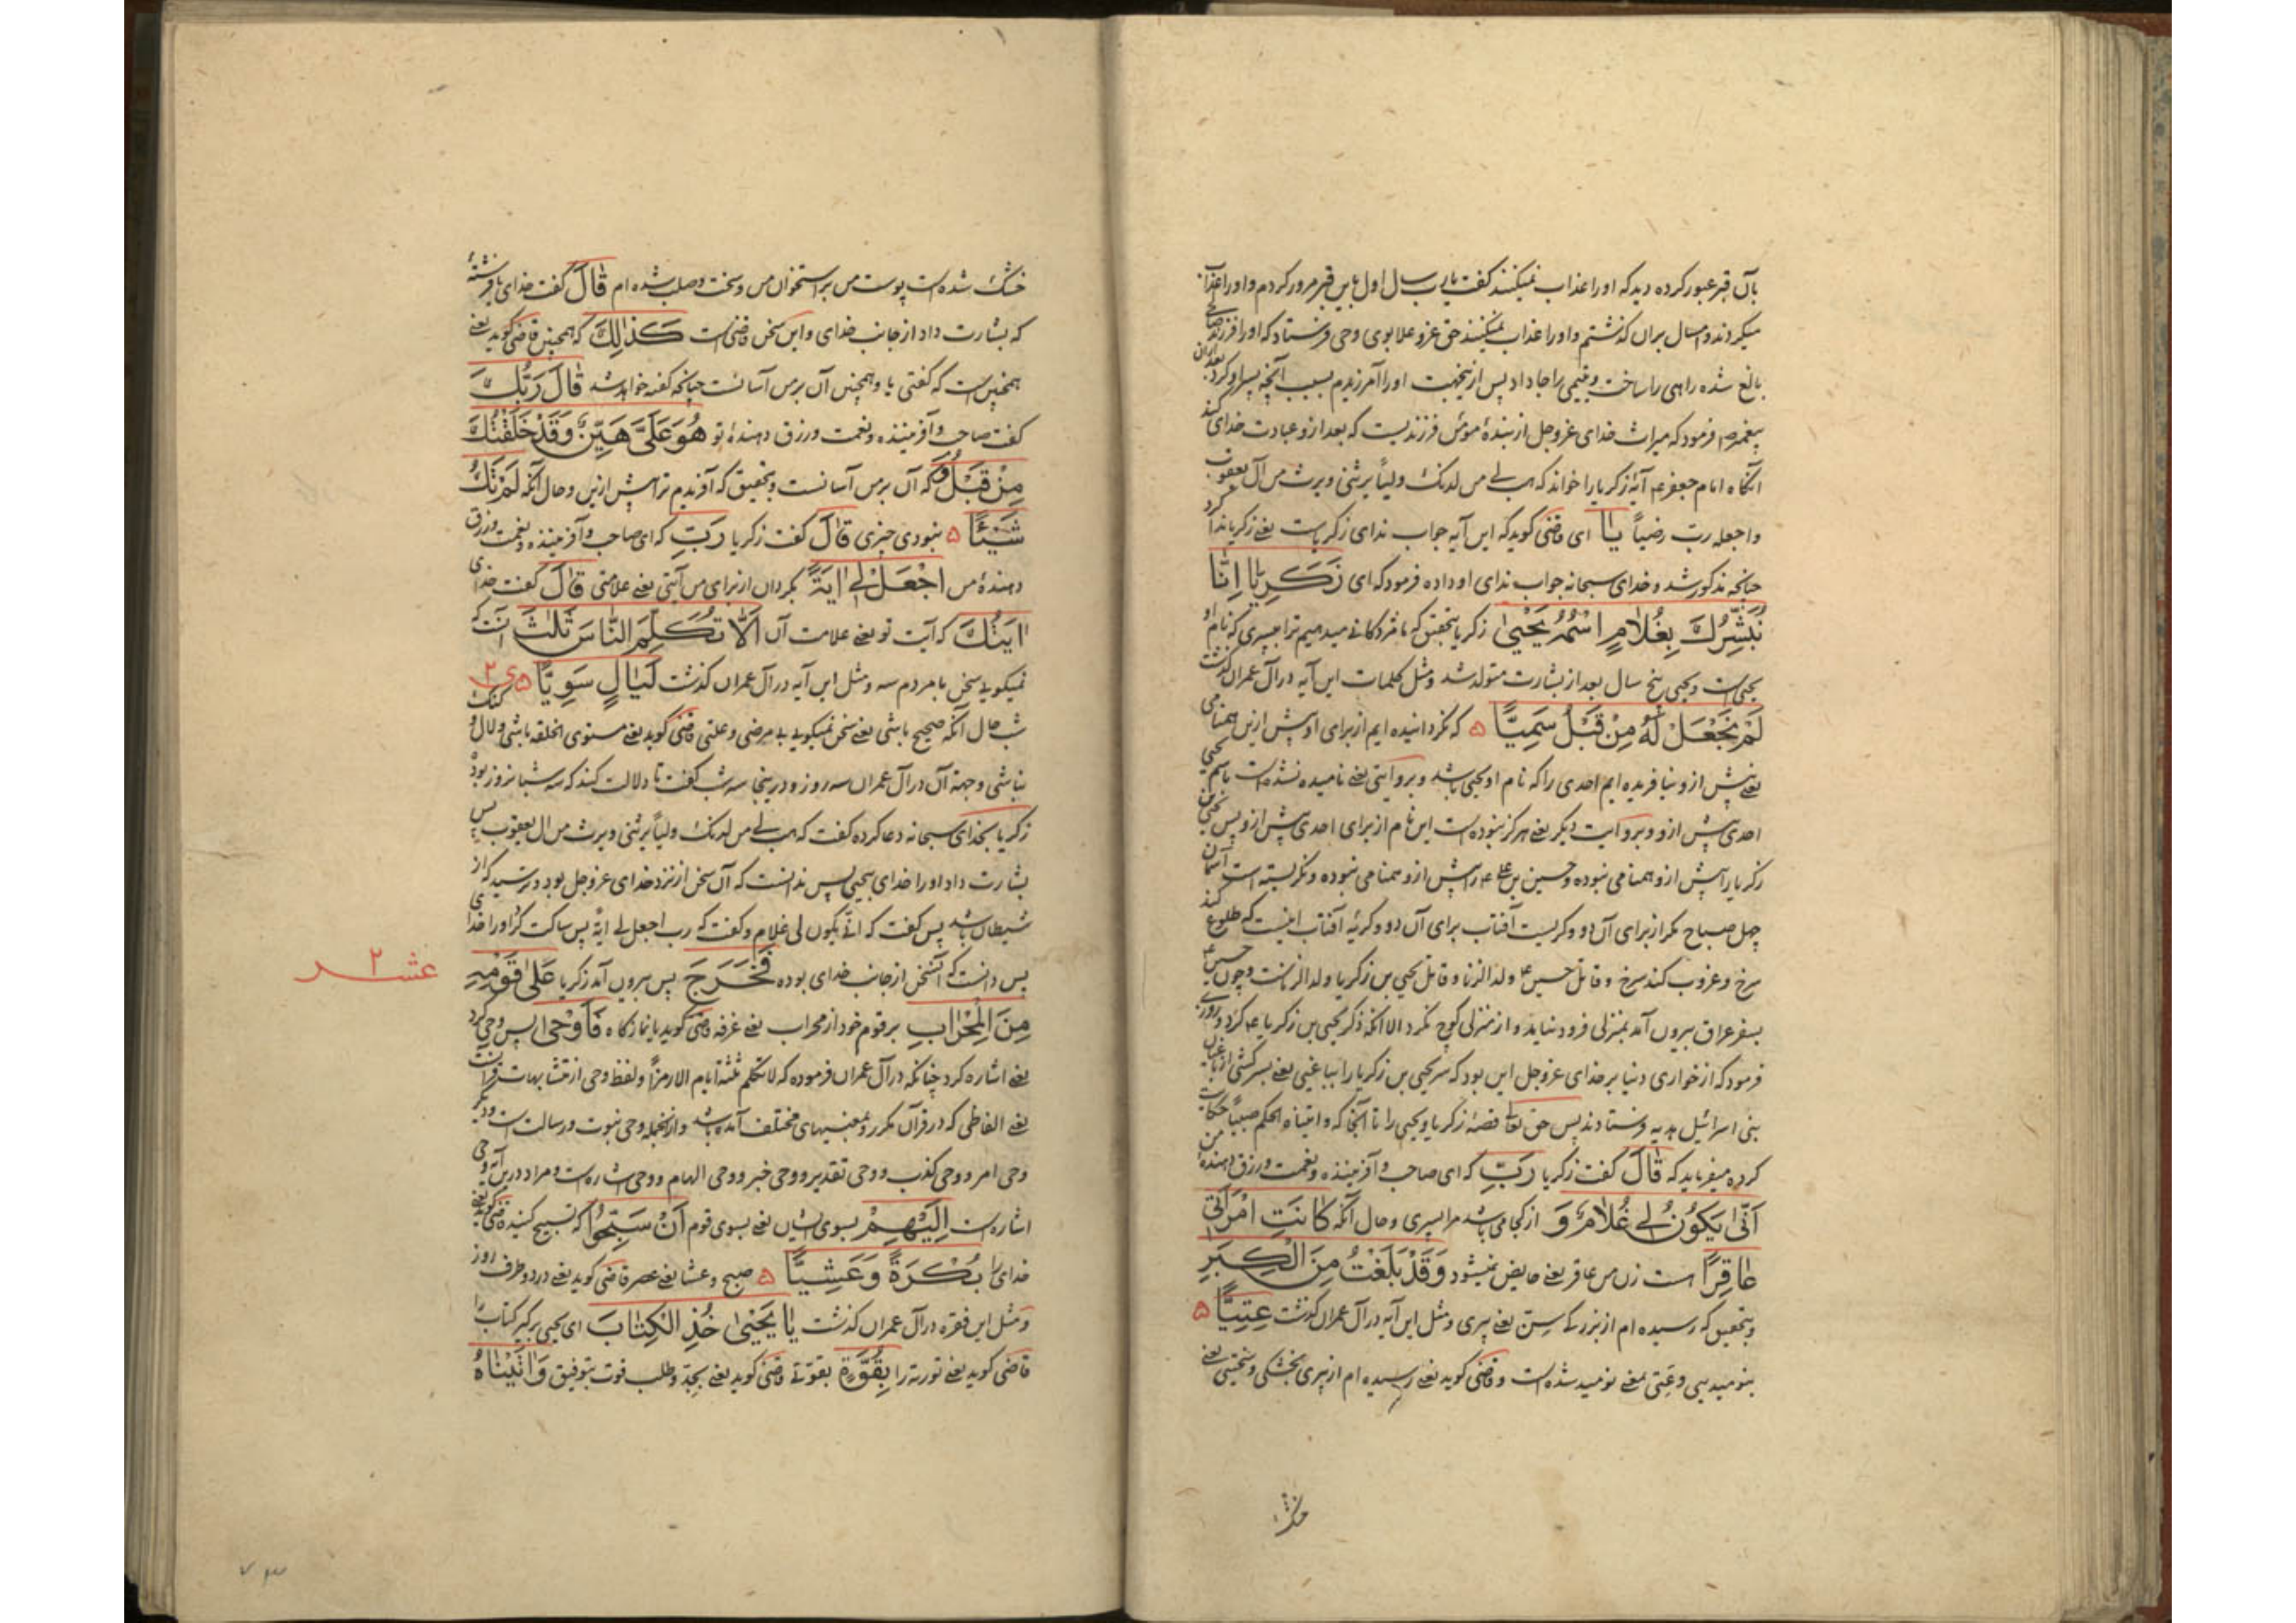 بآن قبر عبور کرده دید که او را عذاب نمیکنند گفت یا رب سال اول باین قبر مرور کردم و او را عذاب
میکردند و امسال بران گذشتم و او را عذاب نمیکنند حق عز و علا بوی وحی فرستاد که او را فرزند صالحی
بالغ شده راهی را ساخت و یتیمی را جا داد پس ازینجهت او را آمرزیدم بسبب آنچه پسر او کرد بعد ازان
پیغمبر ص فرمود که میراث خدای عز وجل از بندهٔ مومن فرزندیست که بعد ازو عبادت خدای کند
آنگاه امام جعفر ع آیهٔ زکریا را خواند که هب لی من لدنک ولیاً یرثنی و یرث من آل یعقوب
واجعله رب رضیاً یا ای قاضی گوید که این آیه جواب ندای زکریاست یعنی زکریا ندا کرد
چنانچه مذکور شد و خدای سبحانه جواب ندای او داده فرمود که ای زَکَرِیّا اِنّا
نُبَشِّرُكَ بِغُلامٍ اسْمُهُ یَحْییٰ زکریا بتحقیق که ما مژدگانی میدهیم ترا بپسری که نام او
یحیی است و یحیی پنج سال بعد از بشارت متولد شد و مثل کلمات این آیه در آل عمران گذشت
لَمْ نَجْعَلْ لَهُ مِنْ قَبْلُ سَمِیًّا ۵ که نگردانیده ایم از برای او پیش ازین همنامی
یعنی پیش ازو نیافریده ایم احدی را که نام او یحیی باشد و بروایتی یعنی نامیده نشده است باسم یحیی
احدی پیش ازو و بروایت دیگر یعنی هرگز نبوده است این نام از برای احدی پیش ازو پس یحیی بن
زکریا را پیش ازو همنامی نبوده و حسین بن علی ع را پیش ازو همنامی نبوده و نگریسته است آسمان
چهل صباح مگر از برای آن دو و گریست آفتاب برای آن دو و گریهٔ آفتاب اینست که طلوع کند
سرخ و غروب کند سرخ و قاتل حسین ع ولد الزنا و قاتل یحیی بن زکریا ولد الزناست و چون حسین ع
بسفر عراق بیرون آمد بمنزلی فرود نیامد و از منزلی کوچ نکرد الا آنکه ذکر یحیی بن زکریا ع کرد و روزی
فرمود که از خواری دنیا بر خدای عز وجل این بود که سر یحیی بن زکریا را بباغیی یعنی بسرکشی از باغیان
بنی اسرائیل هدیه فرستادند پس حق تعالی قصهٔ زکریا و یحیی را تا آنجا که و اتیناه الحکم صبیاً حکایت
کرده میفرماید که قالَ گفت زکریا رَبِّ که ای صاحب و آفریننده و نعمت و رزق دهندهٔ من
اَنّیٰ یَکُونُ لِی غُلامٌ وَ از کجا می باشد مرا پسری و حال آنکه کانَتِ امْرَاَتِی
عاقِرًا است زن من عاقر یعنی حایض نمیشود وَقَدْ بَلَغْتُ مِنَ الْکِبَرِ
و بتحقیق که رسیده ام از بزرگی سن یعنی پیری و مثل این آیه در آل عمران گذشت عِتِیًّا ۵
بنومیدیی و عتی بمعنی نومید شده است و قاضی گوید یعنی رسیده ام از پیری بخشکی و سختی یعنی
خشک
خشک شده است پوست من بر استخوان من و سخت و صلب شده ام قالَ گفت خدای یا فرشتهٔ
که بشارت داد از جانب خدای و این سخن قاضی است کَذٰلِكَ که همچنین قاضی گوید یعنی
همچنین است که گفتی یا و همچنین آن بر من آسانست چنانچه گفته خواهد شد قالَ رَبُّكَ
گفت صاحب و آفریننده و نعمت و رزق دهندهٔ تو هُوَ عَلَیَّ هَیِّنٌ وَقَدْ خَلَقْتُكَ
مِنْ قَبْلُ وَ که آن بر من آسانست و بتحقیق که آفریدم ترا پیش ازین و حال آنکه لَمْ تَكُ
شَیْئًا ۵ نبودی چیزی قالَ گفت زکریا رَبِّ که ای صاحب و آفریننده و نعمت و رزق
دهندهٔ من اجْعَلْ لِی اٰیَةً بگردان از برای من آیتی یعنی علامتی قالَ گفت خدای
اٰیَتُكَ که آیت تو یعنی علامت آن اَلّا تُکَلِّمَ النّاسَ ثَلٰثَ آنست که
نمیگویی سخن با مردم سه و مثل این آیه در آل عمران گذشت لَیالٍ سَوِیًّا ۵ ی ۲
شب حال آنکه صحیح باشی یعنی سخن نمیگویی بی مرضی و علتی قاضی گوید یعنی مستوی الخلقه باشی و لال و گنگ
نباشی و جهة آن در آل عمران سه روز و درینجا سه شب گفت تا دلالت کند که سه شبانروز بود
زکریا بخدای سبحانه دعا کرده گفت که هب لی من لدنک ولیاً یرثنی و یرث من ال یعقوب پس
بشارت داد او را خدای بیحیی پس ندانست که آن سخن از نزد خدای عز وجل بود و ترسید که از
شیطان باشد پس گفت که انی یکون لی غلام و گفت که رب اجعل لی ایة پس ساکت کرد او را خدای
پس دانست که آنسخن از جانب خدای بوده فَخَرَجَ پس بیرون آمد زکریا عَلیٰ قَوْمِهِ
عشر ۲
مِنَ الْمِحْرابِ بر قوم خود از محراب یعنی غرفه قاضی گوید یا نمازگاه فَاَوْحیٰ پس وحی کرد
یعنی اشاره کرد چنانکه در آل عمران فرموده که لا تکلم ثلثة ایام الا رمزاً و لفظ وحی از متشابهات قرآنست
یعنی الفاظی که در قرآن مکرر و بمعنیهای مختلف آمده باشد و ازانجمله وحی نبوت و رسالت است و دیگر
وحی امر و وحی کذب و وحی تقدیر و وحی خبر و وحی الهام و وحی اشاره است و مراد درین آیه وحی
اشاره است اِلَیْهِمْ بسوی ایشان یعنی بسوی قوم اَنْ سَبِّحُوا که تسبیح کنید قاضی گوید یعنی
خدای را بُکْرَةً وَعَشِیًّا ۵ صبح و عشا یعنی عصر قاضی گوید یعنی در دو طرف روز
و مثل این فقره در آل عمران گذشت یا یَحْییٰ خُذِ الْکِتابَ ای یحیی برگیر کتاب را
قاضی گوید یعنی توریة را بِقُوَّةٍ بقوتی قاضی گوید یعنی بجد و طلب قوت بتوفیق وَاٰتَیْناهُ
۷۳